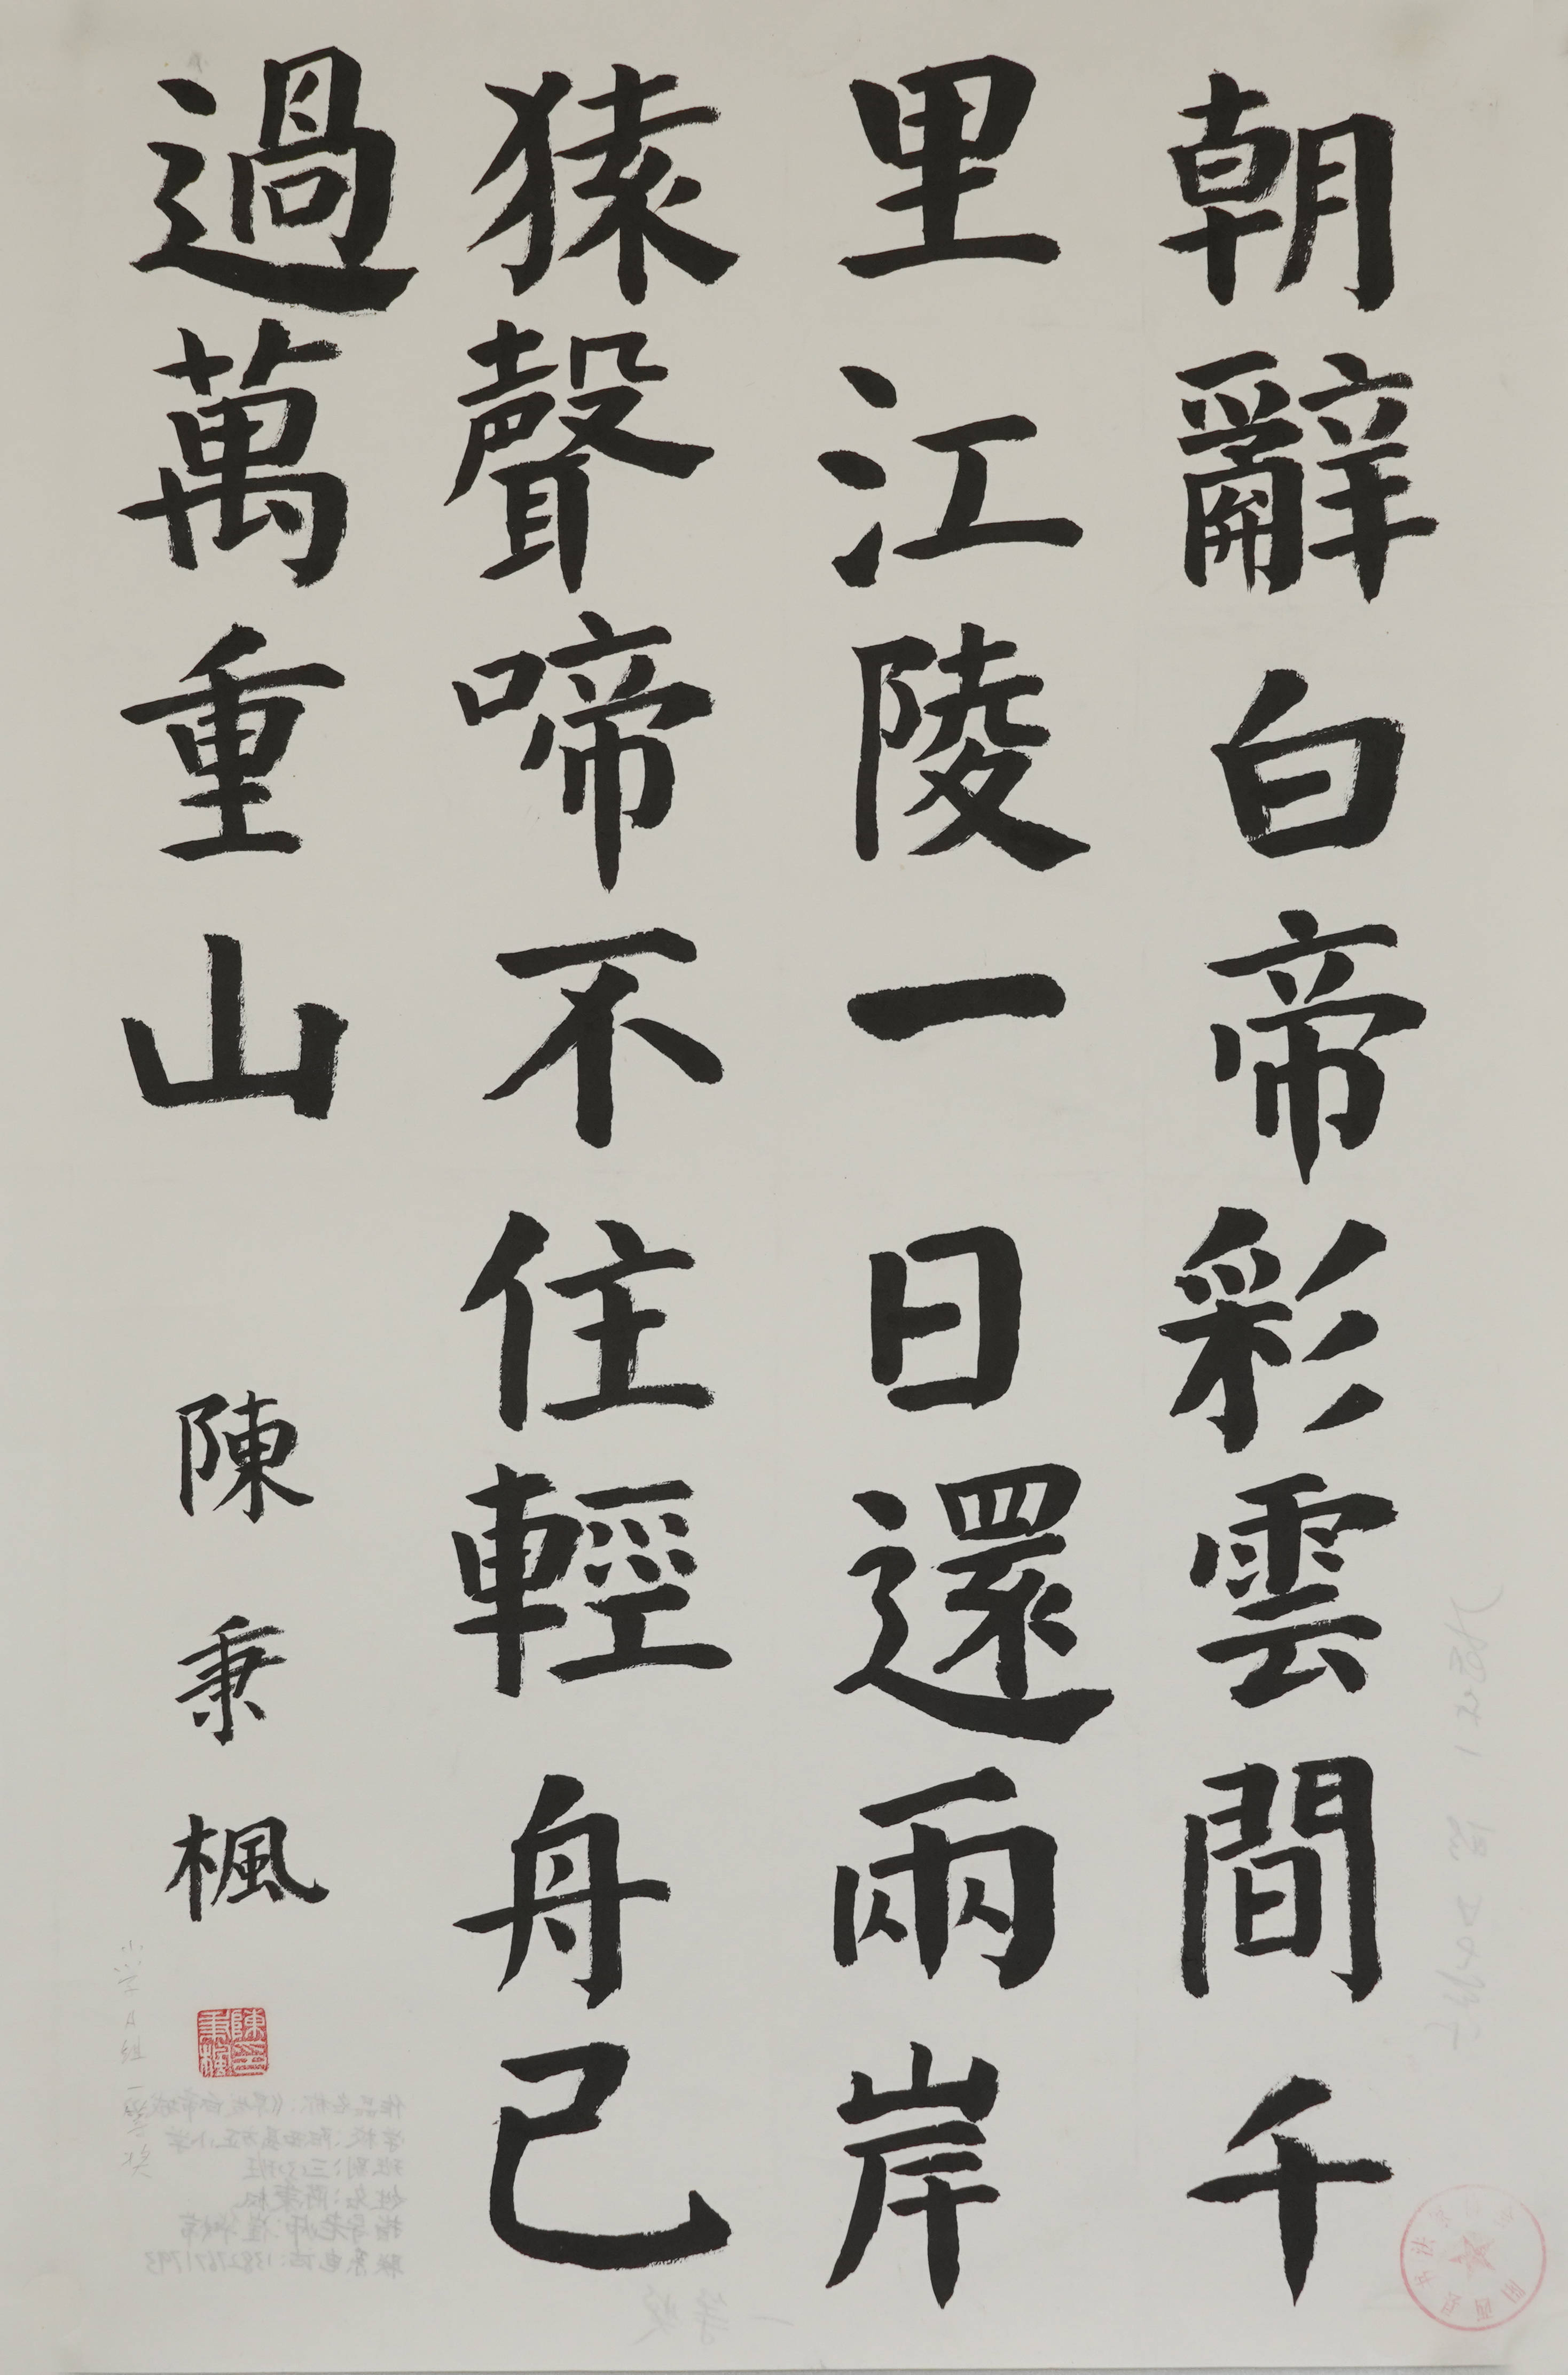 朝辭白帝彩雲間千
里江陵一日還兩岸
猿聲啼不住輕舟已
過萬重山
陳秉楓
陳印秉楓